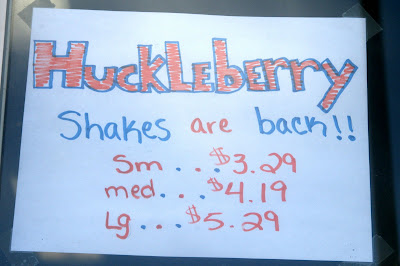 HuckLeberry
Shakes are back!!
Sm...$3.29
med...$4.19
Lg...$5.29